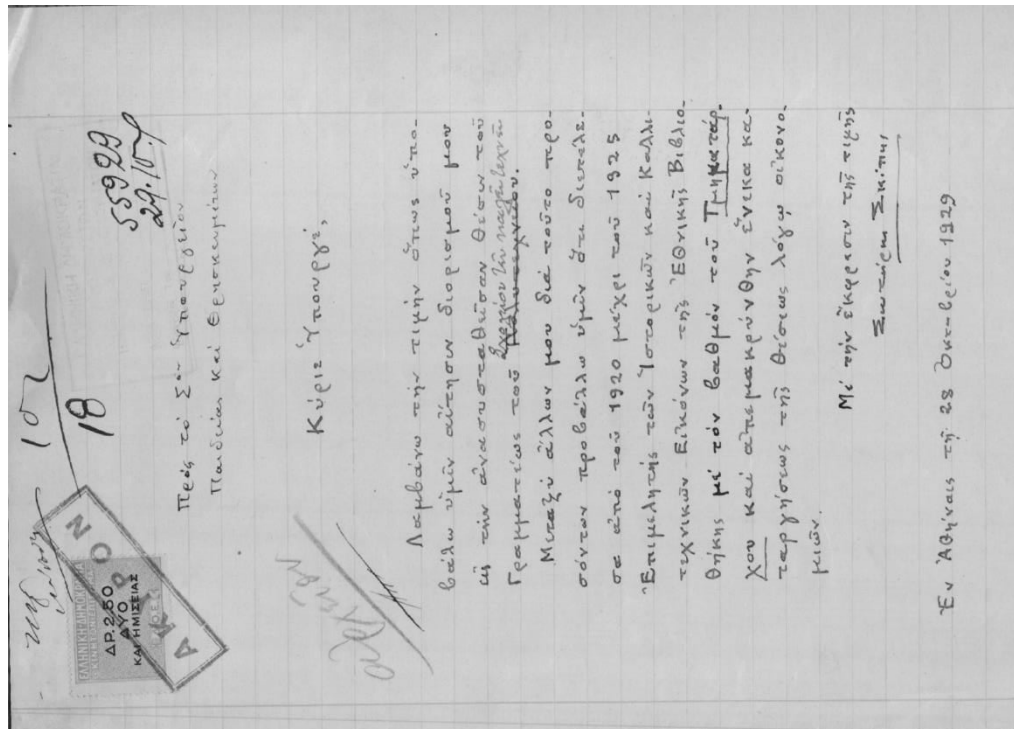 102
18
55929
29.10.
ΕΛΛΗΝΙΚΗ ΔΗΜΟΚΡΑΤΙΑ
ΔΡ. 2.50
ΔΥΟ
ΚΑΙ ΗΜΙΣΕΙΑΣ
ΑΚΥΡΟΝ
Πρός τό Σον Ὑπουργεῖον
Παιδείας καί Θρησκευμάτων
Κύριε Ὑπουργέ,
Λαμβάνω τήν τιμήν ὅπως ὑπο-
βάλω ὑμῖν αἴτησιν διορισμοῦ μου
εἰς τήν ἀνασυσταθεῖσαν θέσιν τοῦ
ἀρχείου τῶν καλῶν τεχνῶν
Γραμματέως τοῦ Πολυτεχνείου.
Μεταξύ ἄλλων μου διά τοῦτο προ-
σόντων προβάλλω ὑμῖν ὅτι διετέλε-
σα ἀπό τοῦ 1920 μέχρι τοῦ 1925
Ἐπιμελητής τῶν Ἱστορικῶν καί Καλλι-
τεχνικῶν Εἰκόνων τῆς Ἐθνικῆς Βιβλιο-
θήκης μέ τόν βαθμόν τοῦ Τμηματάρ-
χου καί ἀπεμακρύνθην ἕνεκα κα-
ταργήσεως τῆς θέσεως λόγῳ οἰκονο-
μιῶν.
Μέ τήν ἔκφρασιν τῆς τιμῆς
Σωτήρης Σκίπης
Ἐν Ἀθήναις τῇ 28 Ὀκτωβρίου 1929